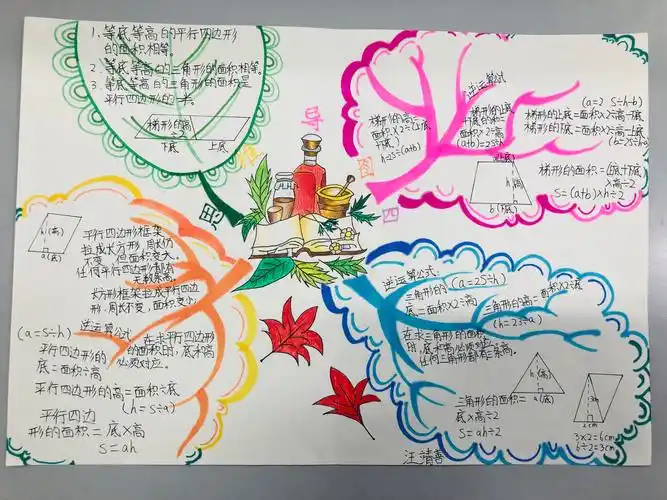 1、等底等高的平行四边形
的面积相等。
2、等底等高的三角形的面积相等。
3、等底等高的三角形的面积是
平行四边形的一半。
梯形的高
下底
上底
思
维
导
图
四
逆运算公式
梯形的高=
面积×2÷(上底
+下底)
h=2S÷(a+b)
梯形的上底
+下底的和=
面积×2÷高
(a+b)=2S÷h
(a=2S÷h-b)
梯形的上底=面积×2÷高-下底
梯形的下底=面积×2÷高-上底
(b=2S÷h-a)
梯形的面积=(上底+下底)
×高÷2
S=(a+b)×h÷2
b(下底)
h(高)
a(底)
平行四边形框架
拉成长方形,周长仍
不变,但面积变大。
任何平行四边形都有
无数条高。
长方形框架拉成平行四边
形,周长不变,面积变小。
(a=S÷h)
逆运算公式
平行四边形的
底=面积÷高
在求平行四边形
的面积时,底和高
必须对应。
平行四边形的高=面积÷底
(h=S÷a)
平行四边
形的面积=底×高
S=ah
逆运算公式:
(a=2S÷h)
三角形的
底=面积×2÷高
三角形的高=面积×2÷底
(h=2S÷a)
在求三角形的面积
时,底和高必须对应。
任何三角形都有三条高。
三角形的面积=
底×高÷2
S=ah÷2
h(高)
a(底)
3cm
2cm
3×2=6cm
6÷2=3cm
汪靖喜